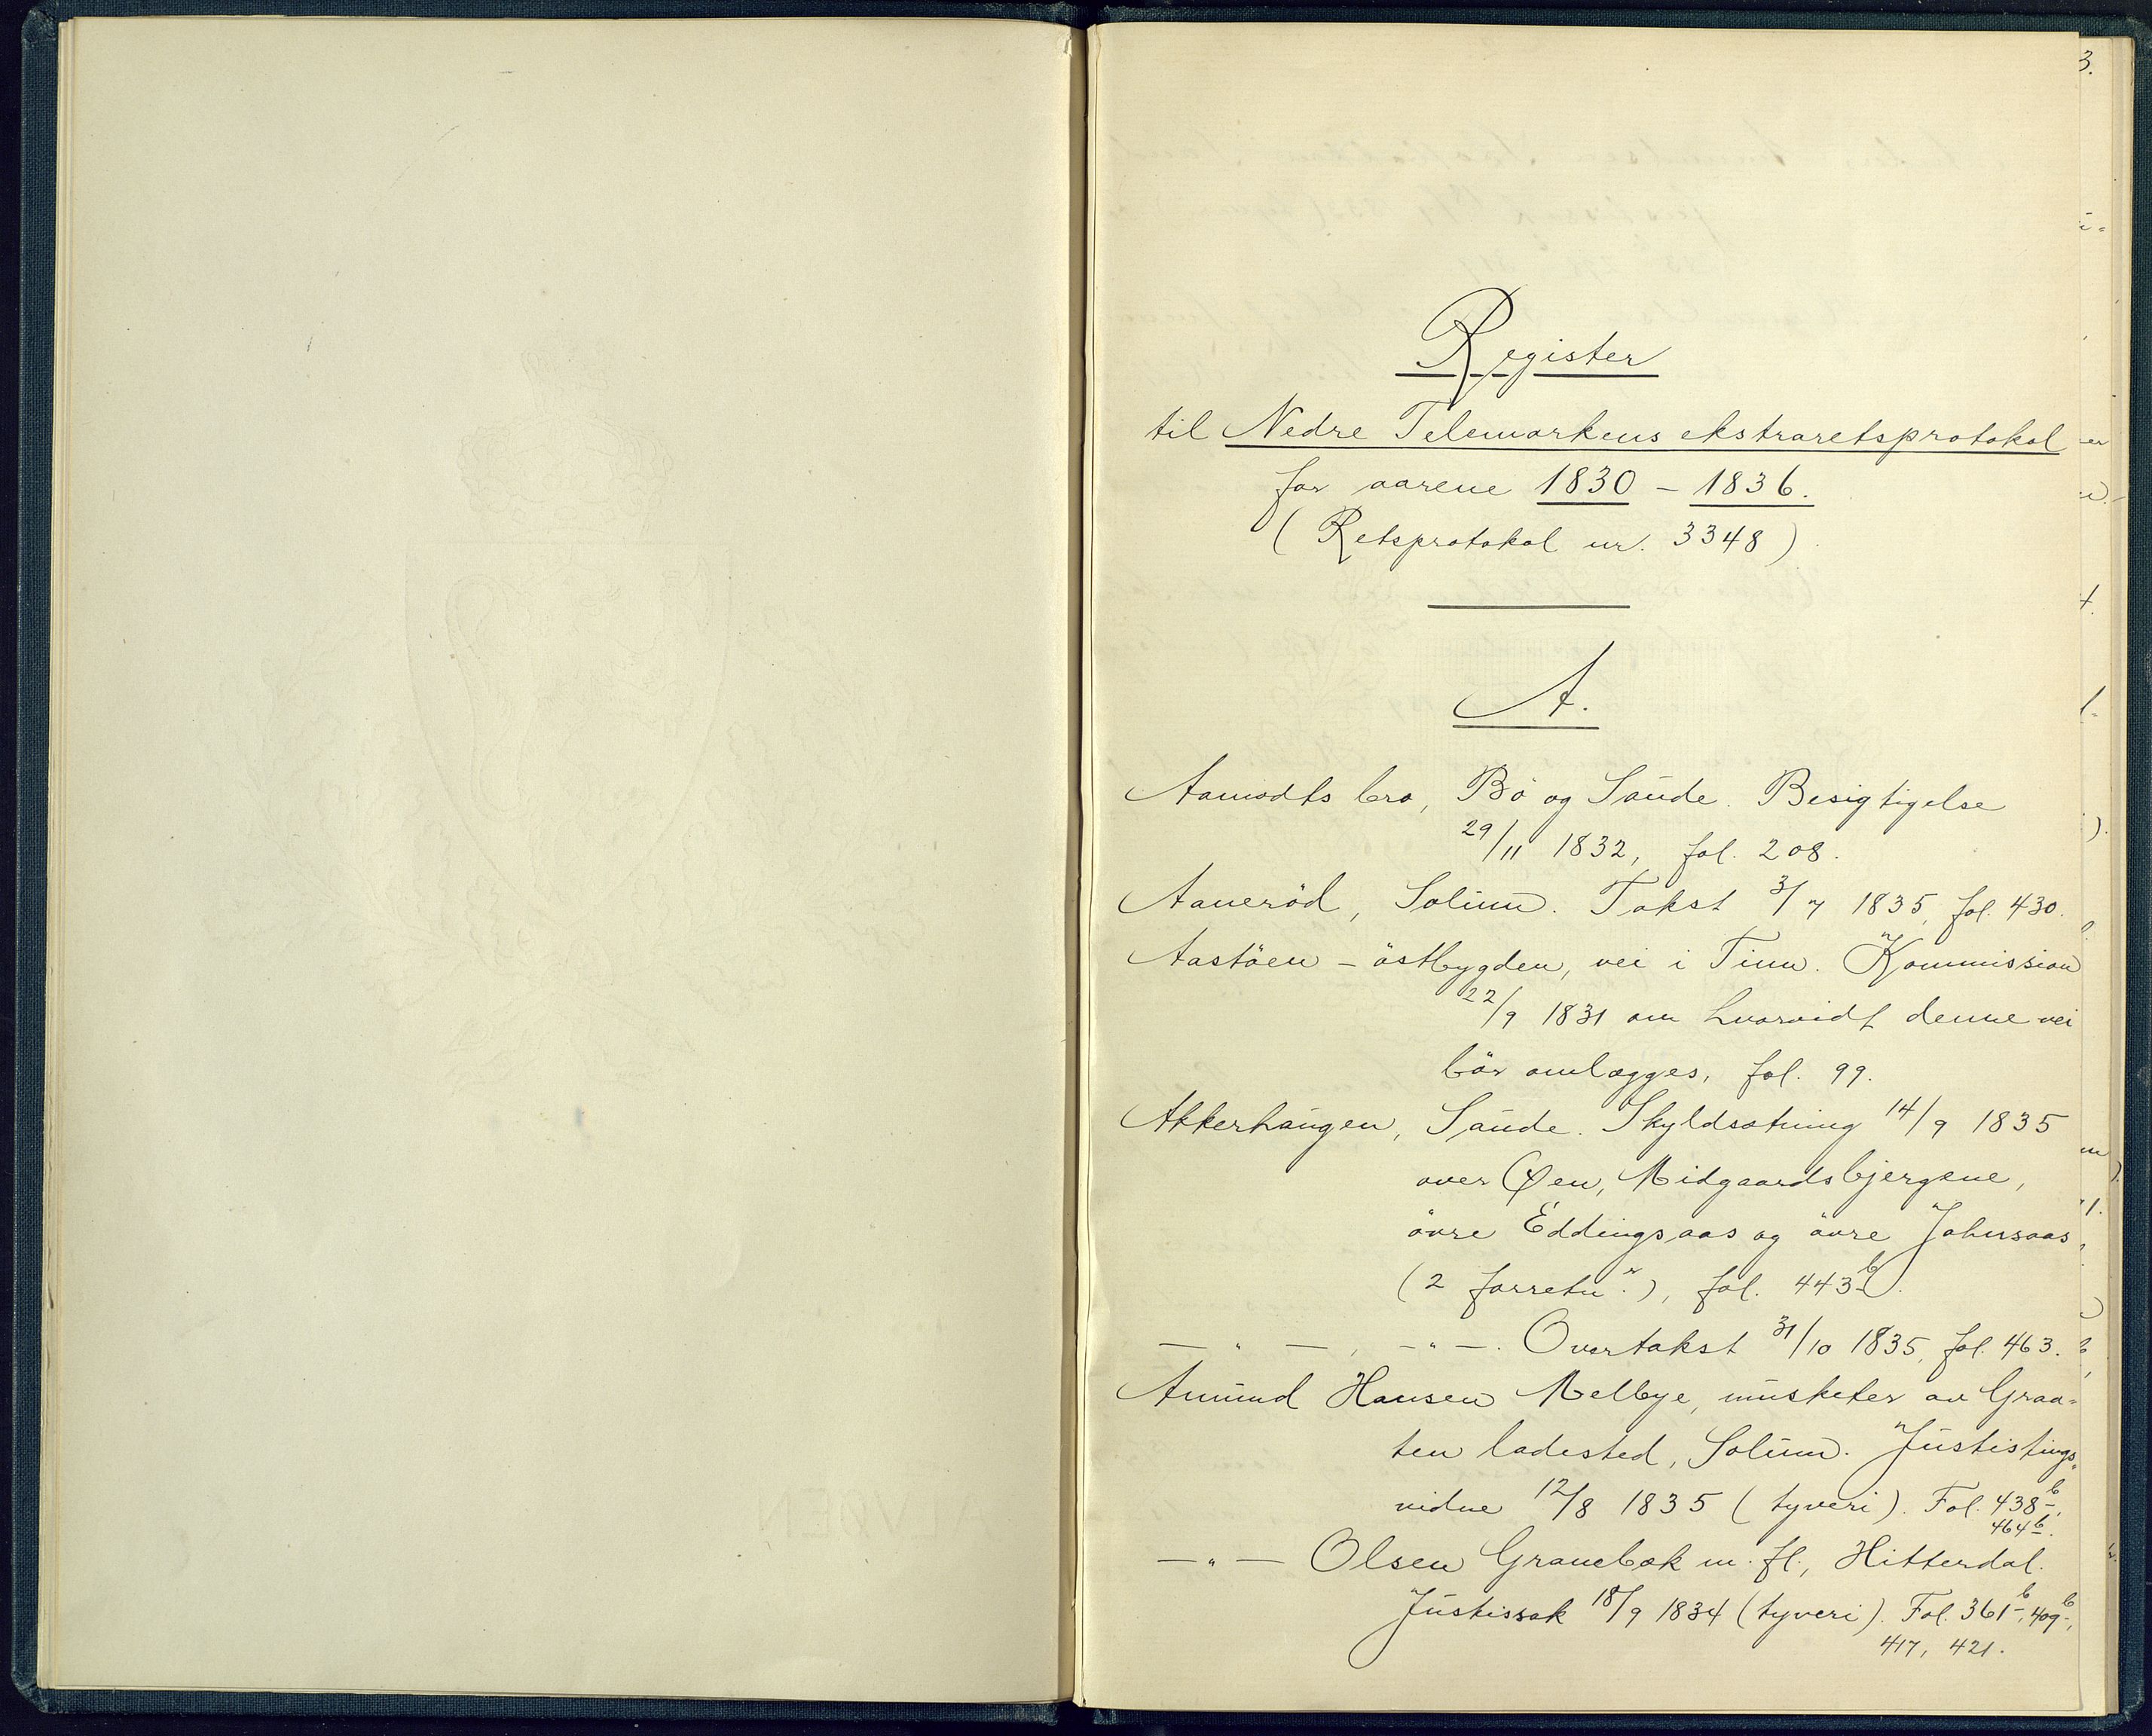 Register
til Nedre Telemarkens ekstraretsprotokol
for aarene 1830 - 1836.
(Retsprotokol nr. 3348)
A.
Aamodts bro, Bö og Saude. Besigtigelse
29/11 1832, fol. 208.
Aaneröd, Solum. Takst 3/7 1835, fol. 430.
Aastöen - östbygden, vei i Tinn. Kommission
22/9 1831 om hvorvidt denne vei
bör omlægges, fol. 99.
Akkerhaugen, Saude. Skyldsætning 14/9 1835
over Øen, Midgaardsbjergene,
övre Eddingsaas og övre Johnsaas
(2 forretn.r), fol. 443b.
— " —, - " -. Overtakst 31/10 1835, fol. 463.
Amund Hansen Melbye, musketer av Graa-
ten ladested, Solum. Justistings-
vidne 12/8 1835 (tyveri). Fol. 438b,
464b.
— " — Olsen Granebæk m. fl., Hitterdal.
Justissak 18/9 1834 (tyveri). Fol. 361b, 409b,
417, 421.